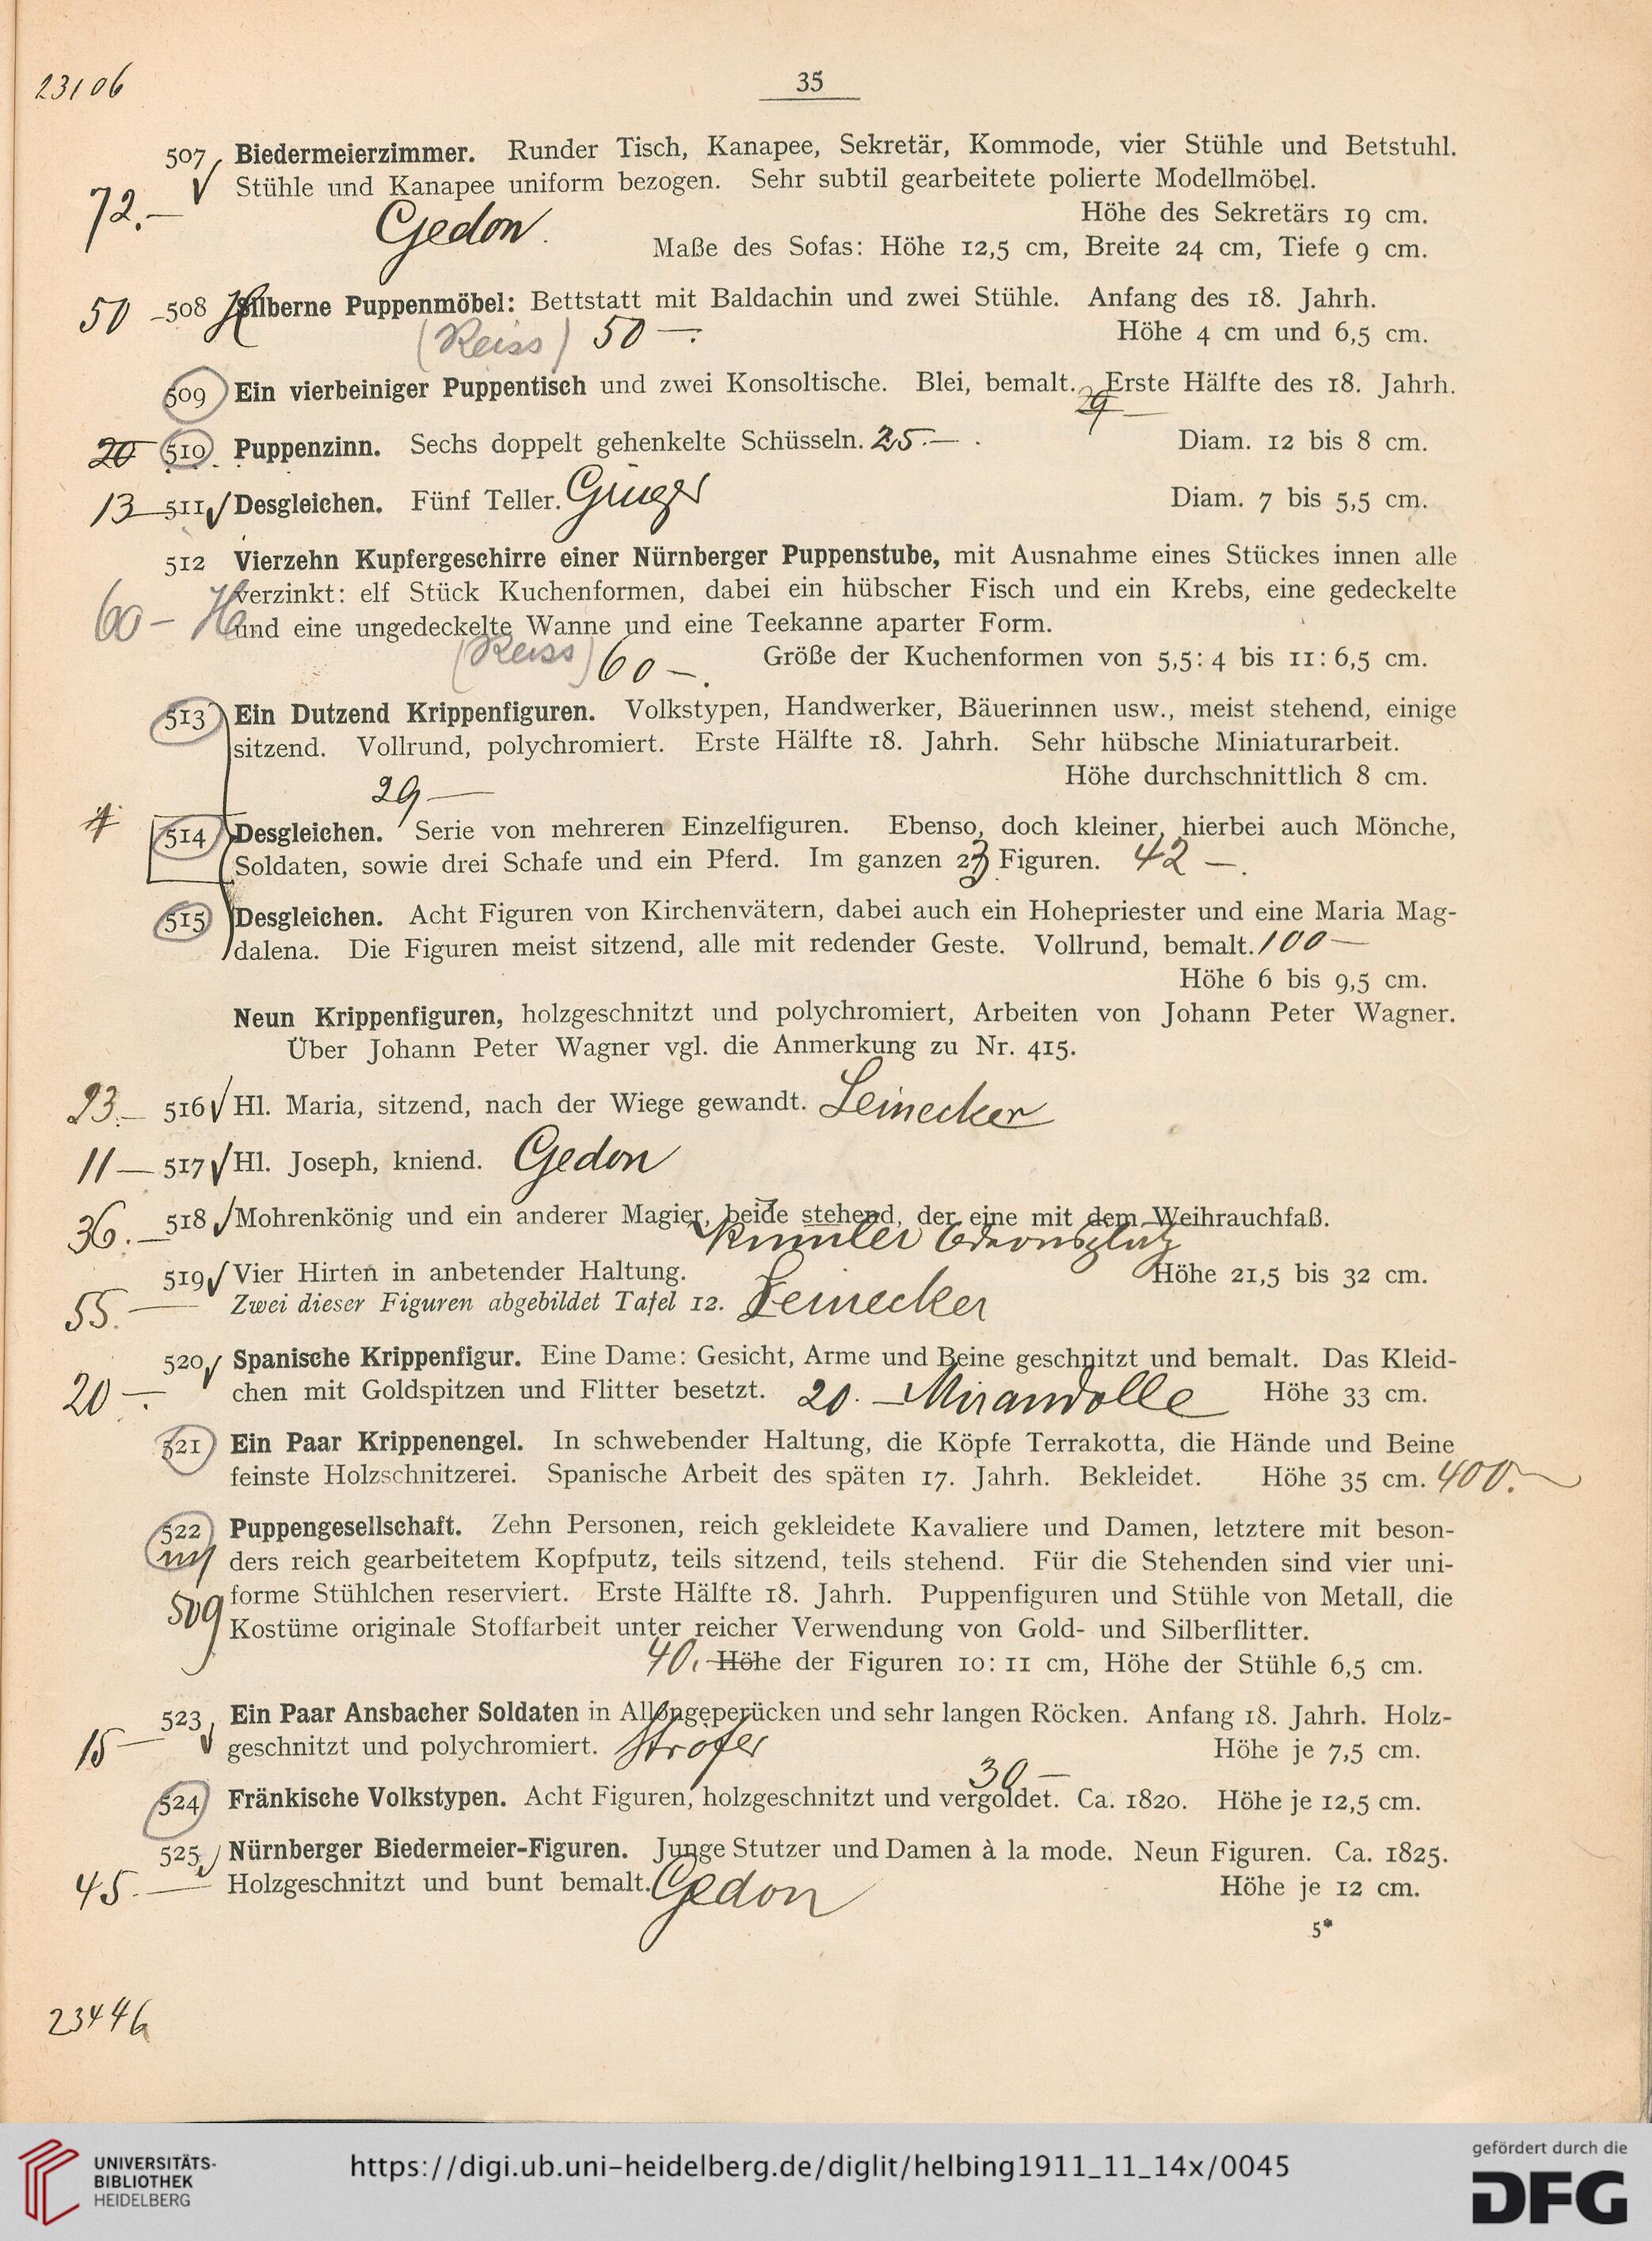 23106
35
507 Biedermeierzimmer. Runder Tisch, Kanapee, Sekretär, Kommode, vier Stühle und Betstuhl.
Stühle und Kanapee uniform bezogen. Sehr subtil gearbeitete polierte Modellmöbel.
72.— Gedon. Höhe des Sekretärs 19 cm.
Maße des Sofas: Höhe 12,5 cm, Breite 24 cm, Tiefe 9 cm.
50 — 508 H Silberne Puppenmöbel: Bettstatt mit Baldachin und zwei Stühle. Anfang des 18. Jahrh.
(Reiss) 50 —. Höhe 4 cm und 6,5 cm.
509 Ein vierbeiniger Puppentisch und zwei Konsoltische. Blei, bemalt. Erste Hälfte des 18. Jahrh.
29 —
20 510 Puppenzinn. Sechs doppelt gehenkelte Schüsseln. 25.— Diam. 12 bis 8 cm.
13 — 511 Desgleichen. Fünf Teller. Diam. 7 bis 5,5 cm.
512 Vierzehn Kupfergeschirre einer Nürnberger Puppenstube, mit Ausnahme eines Stückes innen alle
verzinkt: elf Stück Kuchenformen, dabei ein hübscher Fisch und ein Krebs, eine gedeckelte
60 — H und eine ungedeckelte Wanne und eine Teekanne aparter Form.
(Reiss) 60 —. Größe der Kuchenformen von 5,5 : 4 bis 11 : 6,5 cm.
513 Ein Dutzend Krippenfiguren. Volkstypen, Handwerker, Bäuerinnen usw., meist stehend, einige
sitzend. Vollrund, polychromiert. Erste Hälfte 18. Jahrh. Sehr hübsche Miniaturarbeit.
29 — Höhe durchschnittlich 8 cm.
514 Desgleichen. Serie von mehreren Einzelfiguren. Ebenso, doch kleiner, hierbei auch Mönche,
Soldaten, sowie drei Schafe und ein Pferd. Im ganzen 23 Figuren. 42 —.
515 Desgleichen. Acht Figuren von Kirchenvätern, dabei auch ein Hohepriester und eine Maria Mag-
dalena. Die Figuren meist sitzend, alle mit redender Geste. Vollrund, bemalt. 100 —
Höhe 6 bis 9,5 cm.
Neun Krippenfiguren, holzgeschnitzt und polychromiert, Arbeiten von Johann Peter Wagner.
Über Johann Peter Wagner vgl. die Anmerkung zu Nr. 415.
23.— 516 Hl. Maria, sitzend, nach der Wiege gewandt. Leinecker
11 — 517 Hl. Joseph, kniend. Gedon
36.— 518 Mohrenkönig und ein anderer Magier, beide stehend, der eine mit dem Weihrauchfaß.
519 Vier Hirten in anbetender Haltung. Höhe 21,5 bis 32 cm.
55.— Zwei dieser Figuren abgebildet Tafel 12. Leinecker
520 Spanische Krippenfigur. Eine Dame: Gesicht, Arme und Beine geschnitzt und bemalt. Das Kleid-
20 —. chen mit Goldspitzen und Flitter besetzt. 20. — Mirandolle Höhe 33 cm.
521 Ein Paar Krippenengel. In schwebender Haltung, die Köpfe Terrakotta, die Hände und Beine
feinste Holzschnitzerei. Spanische Arbeit des späten 17. Jahrh. Bekleidet. Höhe 35 cm. 400.—
522 Puppengesellschaft. Zehn Personen, reich gekleidete Kavaliere und Damen, letztere mit beson-
mit ders reich gearbeitetem Kopfputz, teils sitzend, teils stehend. Für die Stehenden sind vier uni-
509 forme Stühlchen reserviert. Erste Hälfte 18. Jahrh. Puppenfiguren und Stühle von Metall, die
Kostüme originale Stoffarbeit unter reicher Verwendung von Gold- und Silberflitter.
40.— Höhe der Figuren 10 : 11 cm, Höhe der Stühle 6,5 cm.
523 Ein Paar Ansbacher Soldaten in Allongeperücken und sehr langen Röcken. Anfang 18. Jahrh. Holz-
15 — geschnitzt und polychromiert. Höhe je 7,5 cm.
30 —
524 Fränkische Volkstypen. Acht Figuren, holzgeschnitzt und vergoldet. Ca. 1820. Höhe je 12,5 cm.
525 Nürnberger Biedermeier-Figuren. Junge Stutzer und Damen à la mode. Neun Figuren. Ca. 1825.
45.— Holzgeschnitzt und bunt bemalt. Gedon Höhe je 12 cm.
5*
23446
UNIVERSITÄTS-
BIBLIOTHEK
HEIDELBERG
https://digi.ub.uni-heidelberg.de/diglit/helbing1911_11_14x/0045
gefördert durch die
DFG